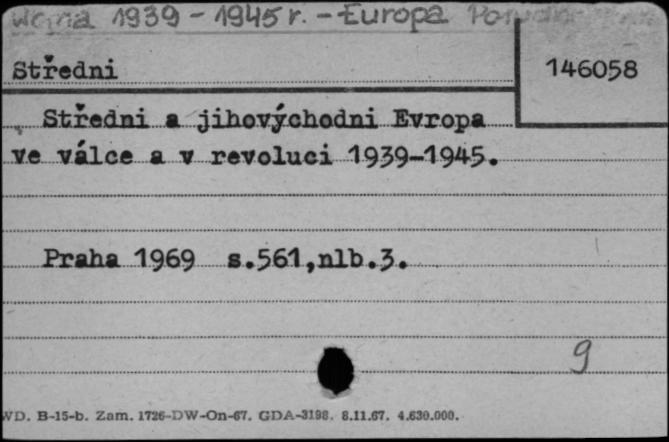 Wojna 1939 - 1945 r. - Europa
Středni
146058
Středni a jihovýchodni Evropa
ve válce a v revoluci 1939-1945.
Praha 1969 s.561,nlb.3.
9
WD. B-15-b. Zam. 1726-DW-On-67. GDA-3198. 8.11.67. 4.630.000.